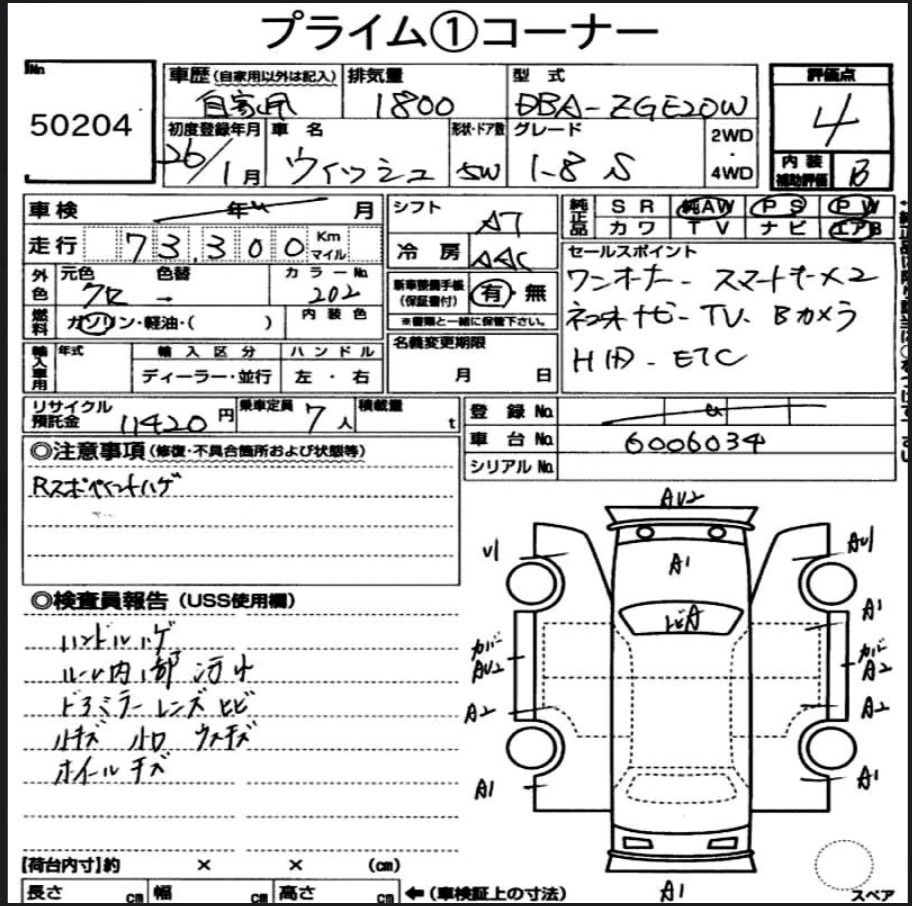 プライム①コーナー
No.
50204
車歴(自家用以外は記入) 自家用
排気量 1800
型式 DBA-ZGE20W
評価点 4
初度登録年月 26/1月
車名 ウィッシュ
形状・ドア数 5W
グレード 1.8 S
2WD・4WD
内装補助評価 B
車検 年 月
走行 73,300 Km マイル
シフト AT
冷房 AAC
純正品 SR 純AW PS PW
カワ TV ナビ エアB
外色 元色 クロ 色替 → カラーNo. 202
燃料 ガソリン・軽油・( ) 内装色
新車整備手帳(保証書付) 有・無
※書類と一緒に保管下さい。
セールスポイント
ワンオーナー スマートキー×2
ネオナビ TV. Bカメラ
HID ETC
輸入車用 年式 輸入区分 ハンドル
ディーラー・並行 左・右
名義変更期限
月 日
リサイクル預託金 11420円
乗車定員 7人
積載量 t
登録No.
車台No. 6006034
シリアルNo.
◎注意事項(修復・不具合箇所および状態等)
Rスポペイントハゲ
◎検査員報告(USS使用欄)
ハンドルハゲ
ルーム内部 汚れ
ドアミラーレンズヒビ
小キズ 小凹 ウスキズ
ホイールキズ
AU2
U1
AU1
A1
トビA
A1
カバーAU2
カバーA2
A2
A2
A1
A1
A1
【荷台内寸】約 × × (cm)
長さ cm 幅 cm 高さ cm ←(車検証上の寸法)
スペア